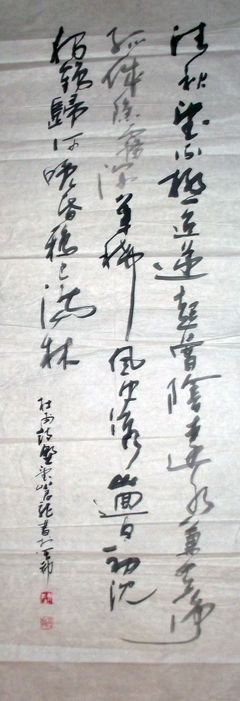 清秋望不極迢遞起曾陰遠水兼天淨
孤城隱霧深葉稀風更落山迥日初沈
獨鶴歸何晚昏鴉已滿林
杜甫詩野望